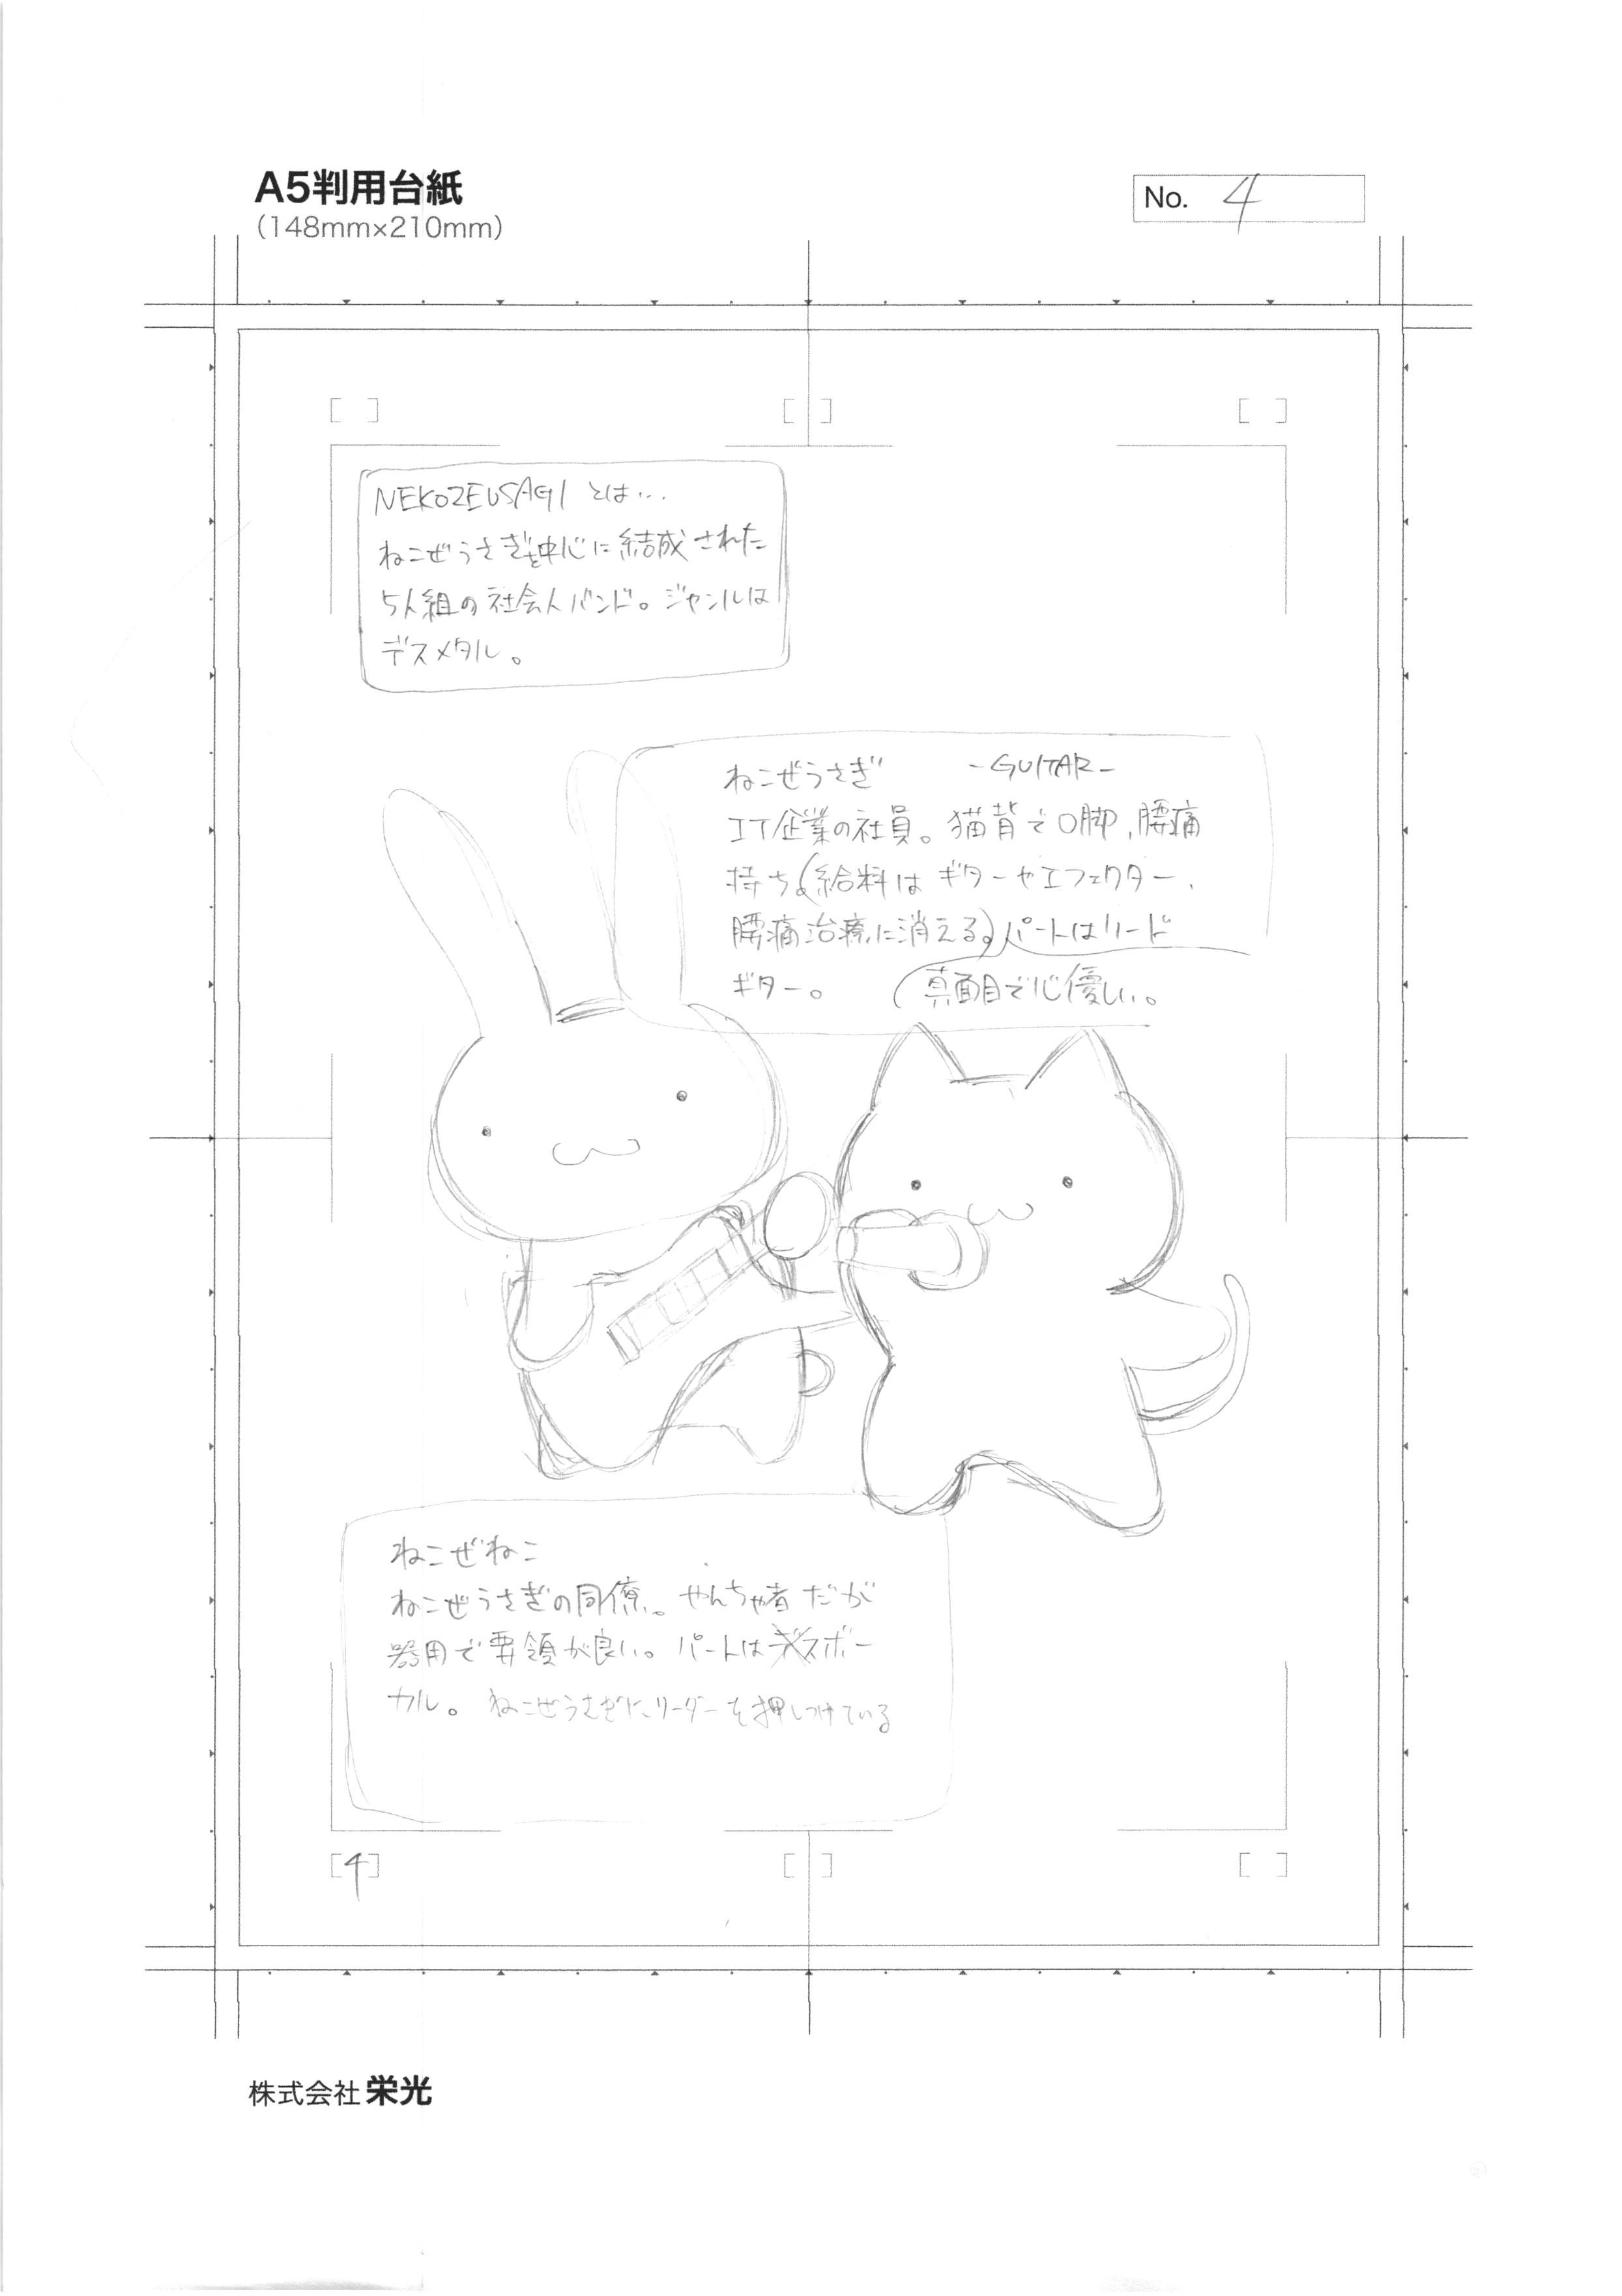 A5判用台紙
(148mm×210mm)
No. 4
NEKOZEUSAGI とは...
ねこぜうさぎを中心に結成された
5人組の社会人バンド。ジャンルは
デスメタル。
ねこぜうさぎ -GUITAR-
IT企業の社員。猫背でO脚、腰痛
持ち。(給料はギターやエフェクター、
腰痛治療に消える。)パートはリード
ギター。 真面目で心優しい。
ねこぜねこ
ねこぜうさぎの同僚。やんちゃ者だが
器用で要領が良い。パートはデスボー
カル。ねこぜうさぎにリーダーを押しつけている
[4]
株式会社 栄光